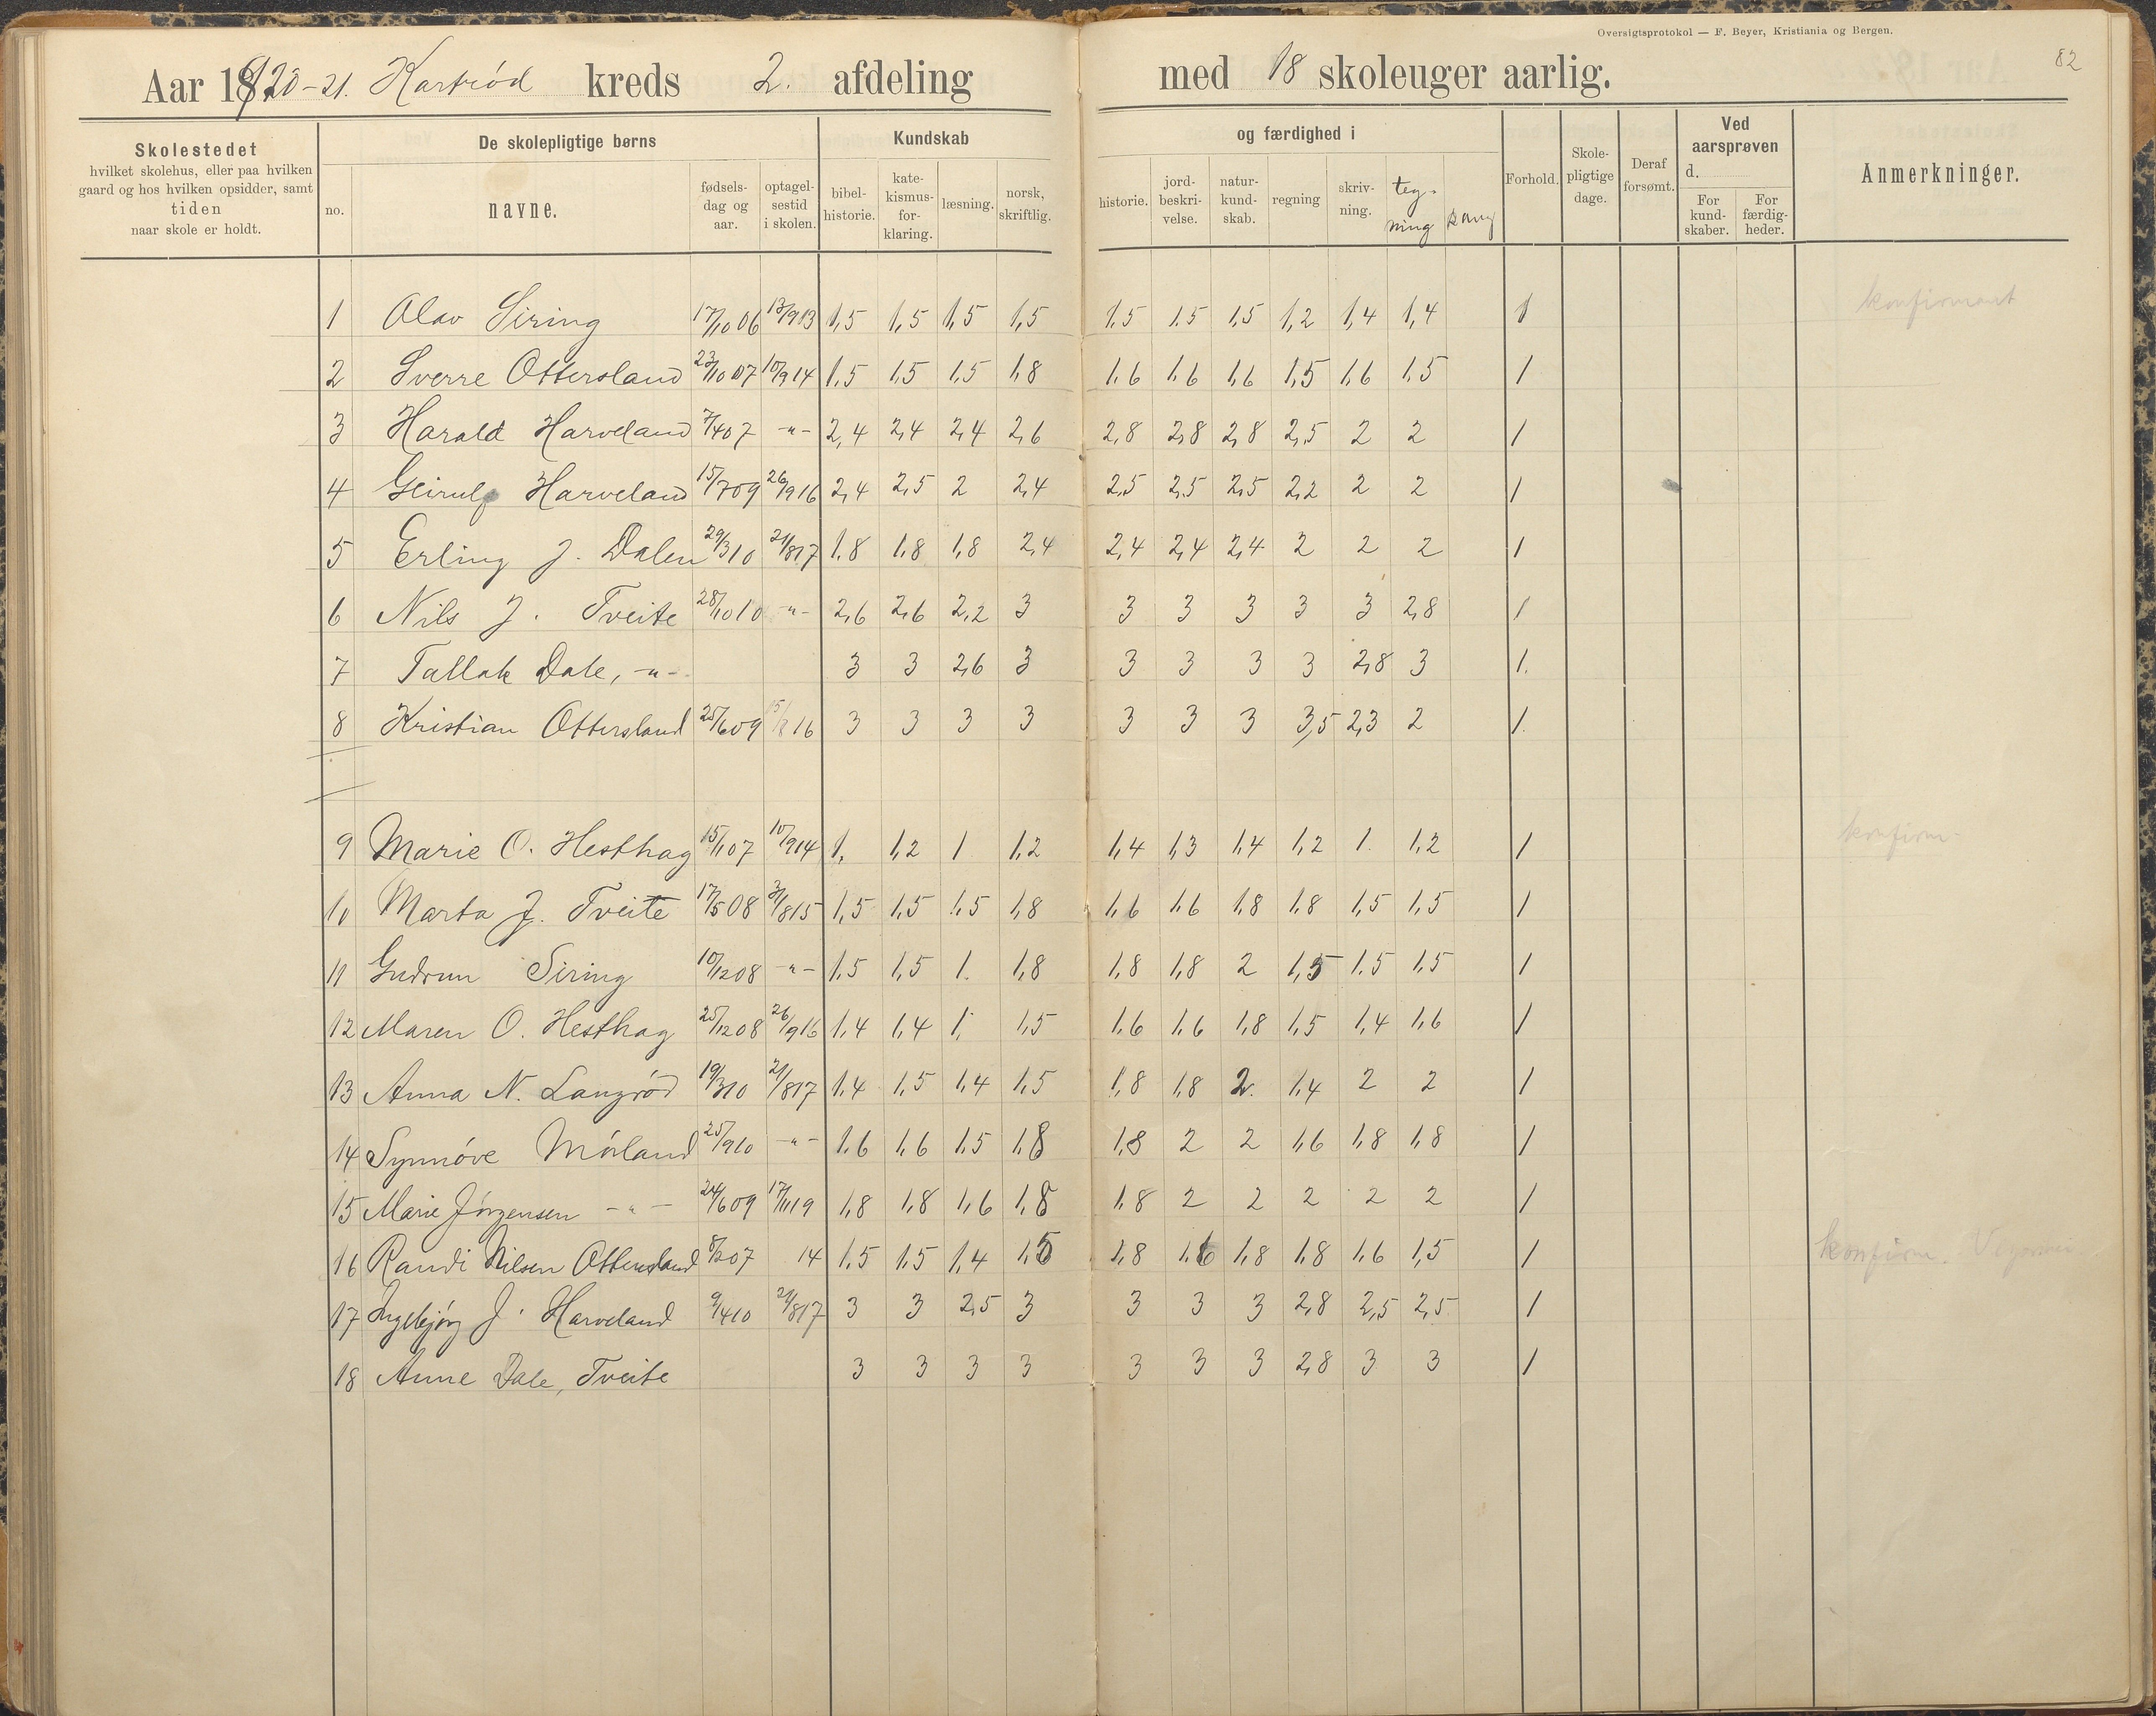 Oversigtsprotokol — F. Beyer, Kristiania og Bergen.
82
Aar 1920-21. Kartrød kreds 2. afdeling med 18 skoleuger aarlig.
Skolestedet hvilket skolehus, eller paa hvilken gaard og hos hvilken opsidder, samt tiden naar skole er holdt.
De skolepligtige børns
no. navne. fødselsdag og aar. optagelsestid i skolen.
Kundskab og færdighed i
bibelhistorie. katekismusforklaring. læsning. norsk, skriftlig. historie. jordbeskrivelse. naturkundskab. regning skrivning. tegning sang
Forhold. Skolepligtige dage. Deraf forsømt.
Ved aarsprøven d.
For kundskaber. For færdigheder.
Anmerkninger.
1 Olav Siring 17/10 06 13/9 13 1,5 1,5 1,5 1,5 1,5 1,5 1,5 1,2 1,4 1,4 1 konfirmant
2 Sverre Ottersland 23/10 07 10/9 14 1,5 1,5 1,5 1,8 1,6 1,6 1,6 1,5 1,6 1,5 1
3 Harald Harveland 7/4 07 -"- 2,4 2,4 2,4 2,6 2,8 2,8 2,8 2,5 2 2 1
4 Geirulf Harveland 15/7 09 26/9 16 2,4 2,5 2 2,4 2,5 2,5 2,5 2,2 2 2 1
5 Erling J. Dalen 29/3 10 21/8 17 1,8 1,8 1,8 2,4 2,4 2,4 2,4 2 2 2 1
6 Nils J. Tveite 28/10 10 -"- 2,6 2,6 2,2 3 3 3 3 3 3 2,8 1
7 Tallak Dale, -"- 3 3 2,6 3 3 3 3 3 2,8 3 1.
8 Kristian Ottersland 25/6 09 16 3 3 3 3 3 3 3 3,5 2,3 2 1.
9 Marie O. Hesthag 15/1 07 10/9 14 1, 1,2 1 1,2 1,4 1,3 1,4 1,2 1. 1,2 1 konfirm-
10 Marta J. Tveite 17/5 08 31/8 15 1,5 1,5 1,5 1,8 1,6 1,6 1,8 1,8 1,5 1,5 1
11 Gudrun Siring 10/12 08 -"- 1,5 1,5 1. 1,8 1,8 1,8 2 1,5 1,5 1,5 1
12 Maren O. Hesthag 25/12 08 26/9 16 1,4 1,4 1, 1,5 1,6 1,6 1,8 1,5 1,4 1,6 1
13 Anna N. Langrød 19/3 10 21/8 17 1,4 1,5 1,4 1,5 1,8 1,8 2. 1,4 2 2 1
14 Synnøve Mørland 25/9 10 -"- 1,6 1,6 1,5 1,8 1,8 2 2 1,6 1,8 1,8 1
15 Marie Jørgensen -"- 24/6 09 17/11 19 1,8 1,8 1,6 1,8 1,8 2 2 2 2 2 1
16 Randi Nilsen Ottersland 8/2 07 14 1,5 1,5 1,4 1,5 1,8 1,6 1,8 1,8 1,6 1,5 1 konfirm.
17 Ingebjørg J. Harveland 9/4 10 21/8 17 3 3 2,5 3 3 3 3 2,8 2,5 2,5 1
18 Anne Dale, Tveite 3 3 3 3 3 3 3 2,8 3 3 1